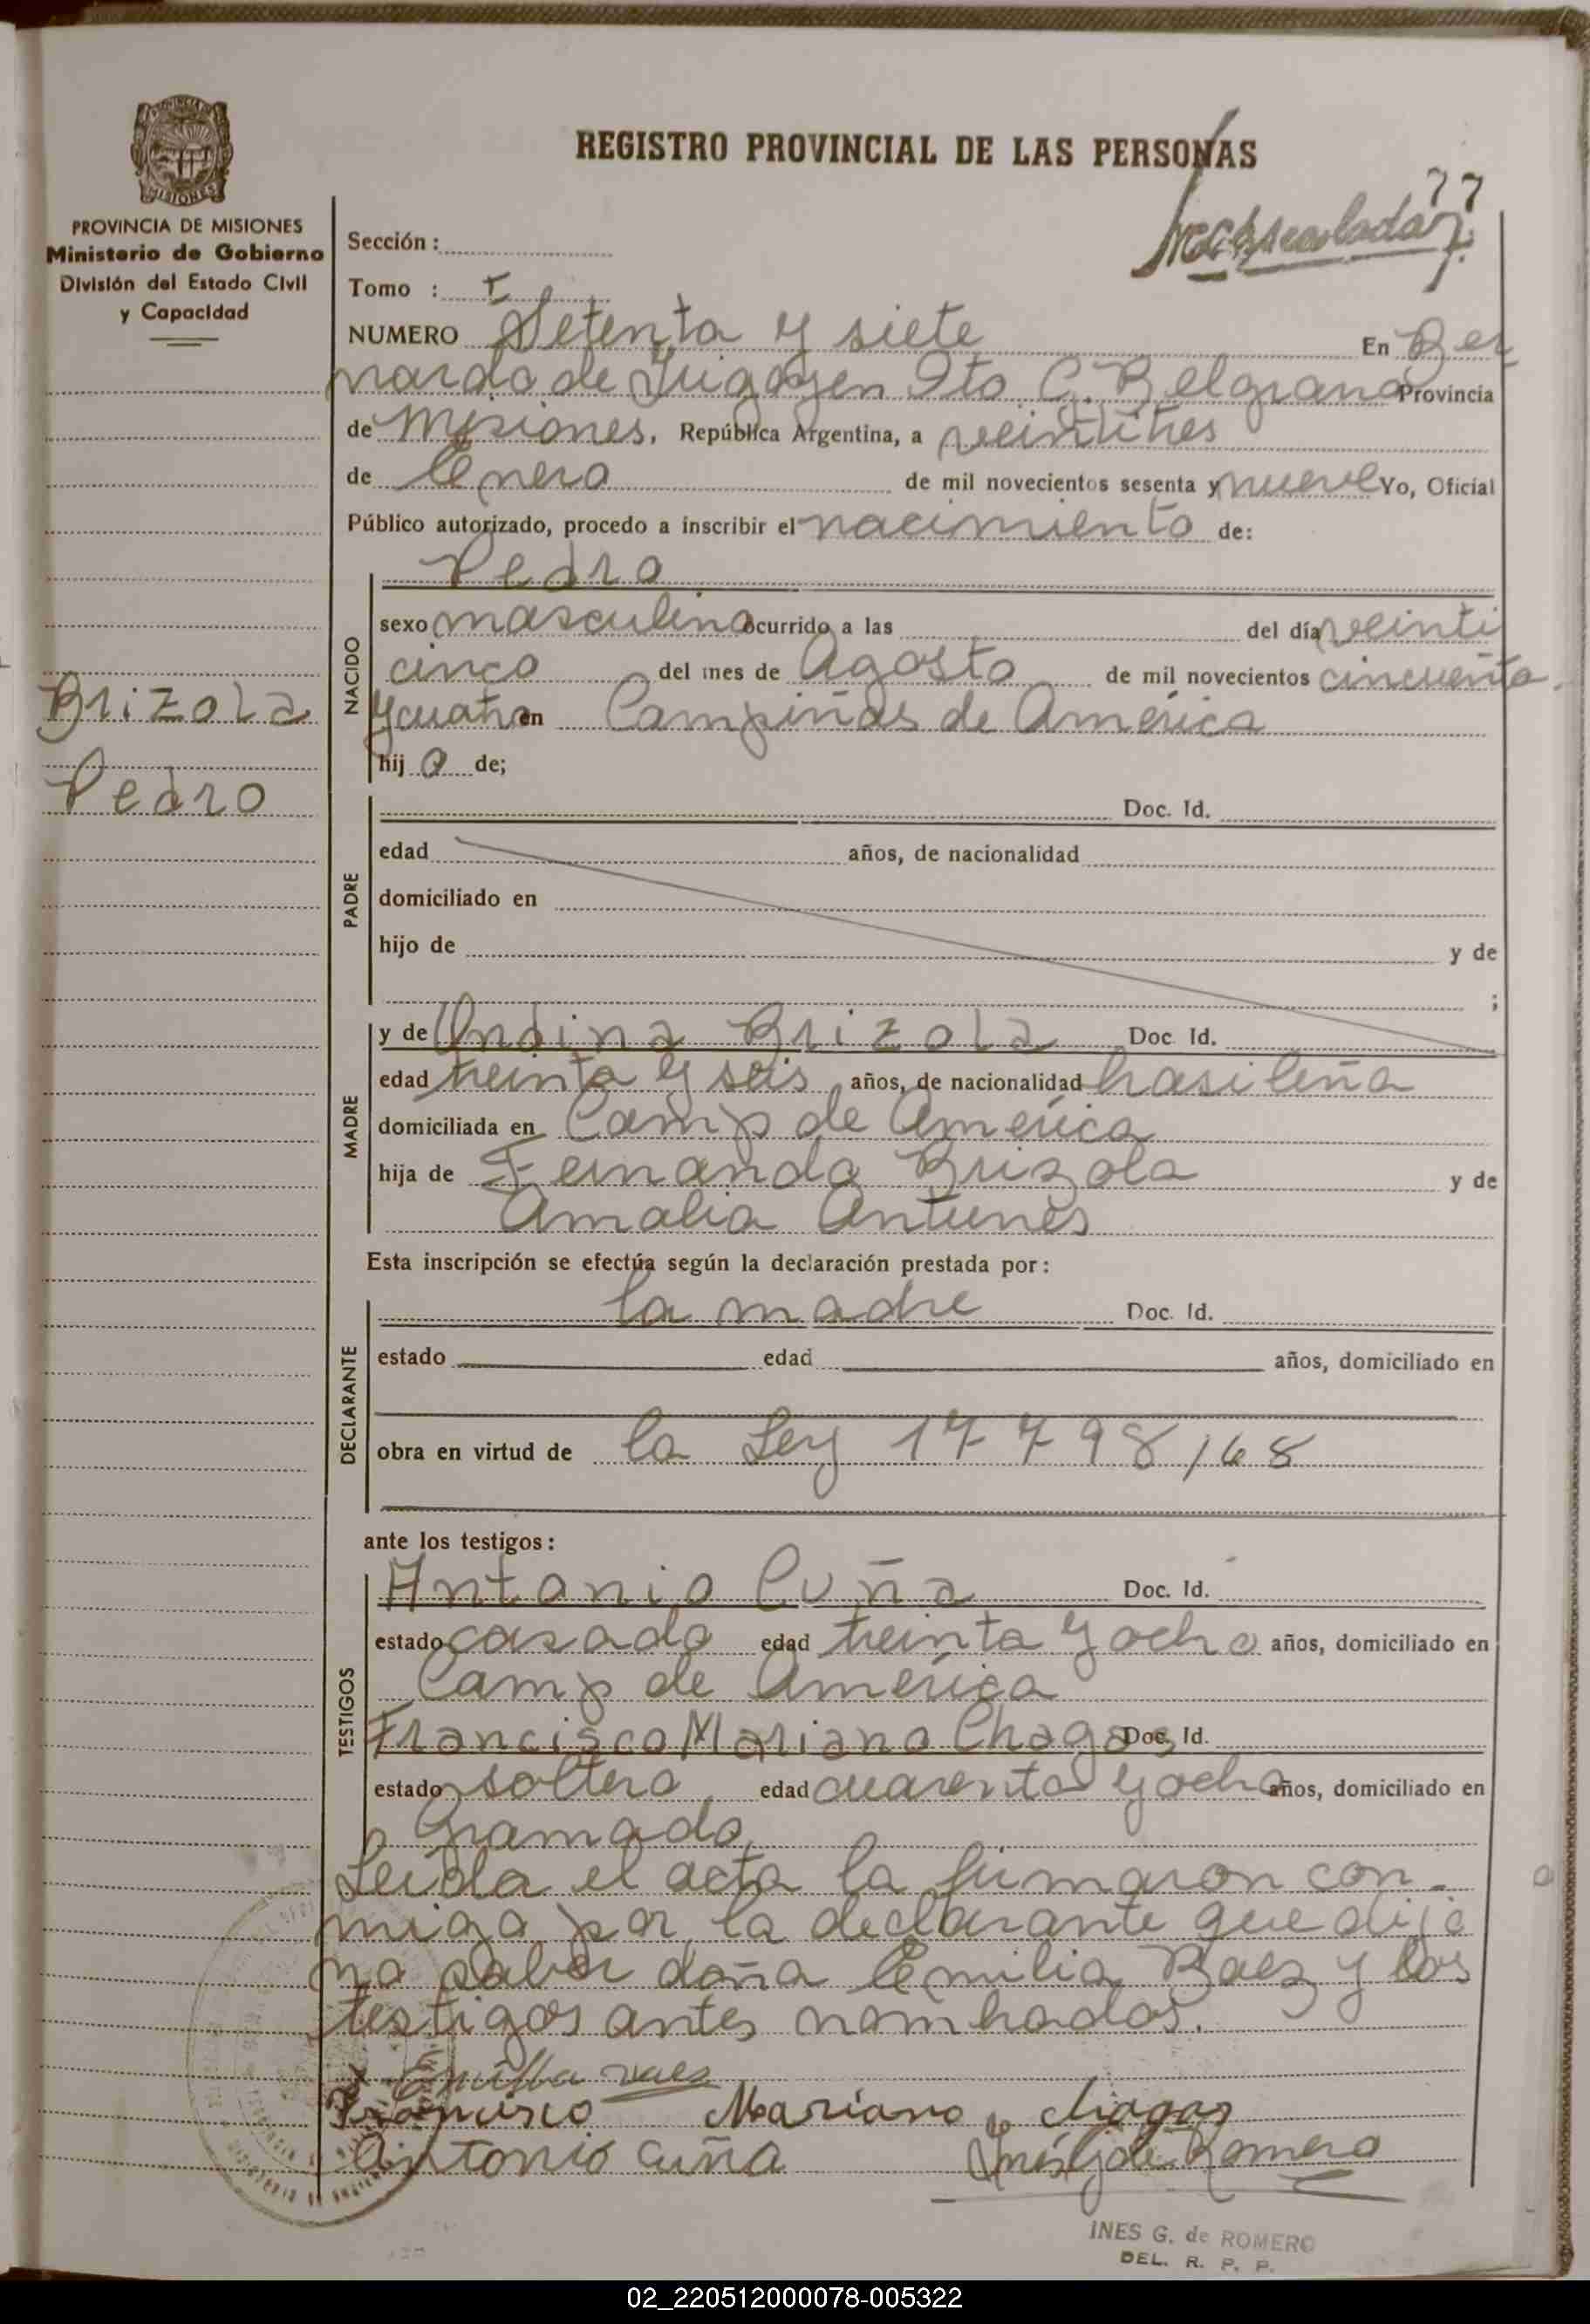 REGISTRO PROVINCIAL DE LAS PERSONAS
77
PROVINCIA DE MISIONES
Ministerio de Gobierno
División del Estado Civil
y Capacidad
Sección :
Tomo : I
NUMERO Setenta y siete En Ber
nardo de Irigoyen Dto G. Belgrano Provincia
de Misiones, República Argentina, a veintitres
de Enero de mil novecientos sesenta y nueve Yo, Oficial
Público autorizado, procedo a inscribir el nacimiento de:
Brizola
Pedro
NACIDO
Pedro
sexo masculino ocurrido a las del día veinti
cinco del mes de Agosto de mil novecientos cincuenta
y cuatro en Campiñas de América
hij o de;
PADRE
Doc. Id.
edad años, de nacionalidad
domiciliado en
hijo de y de
;
MADRE
y de Ondina Brizola Doc. Id.
edad treinta y seis años, de nacionalidad brasileña
domiciliada en Camp de América
hija de Fernando Brizola y de
Amalia Antunes
Esta inscripción se efectúa según la declaración prestada por:
DECLARANTE
la madre Doc. Id.
estado edad años, domiciliado en
obra en virtud de la Ley 17798/68
ante los testigos:
TESTIGOS
Antonio Cuña Doc. Id.
estado casado edad treinta y ocho años, domiciliado en
Camp de América
Francisco Mariano Chagas Doc. Id.
estado soltero edad cuarenta y ocho años, domiciliado en
Gramado
Leída el acta la firmaron con-
migo por la declarante que dijo
no saber doña Emilia Baez y los
testigos antes nombrados.
x Emilia vaes
Francisco Mariano chagas
Antonio cuña Inés G de Romero
INES G. de ROMERO
DEL. R. P. P.
02_220512000078-005322